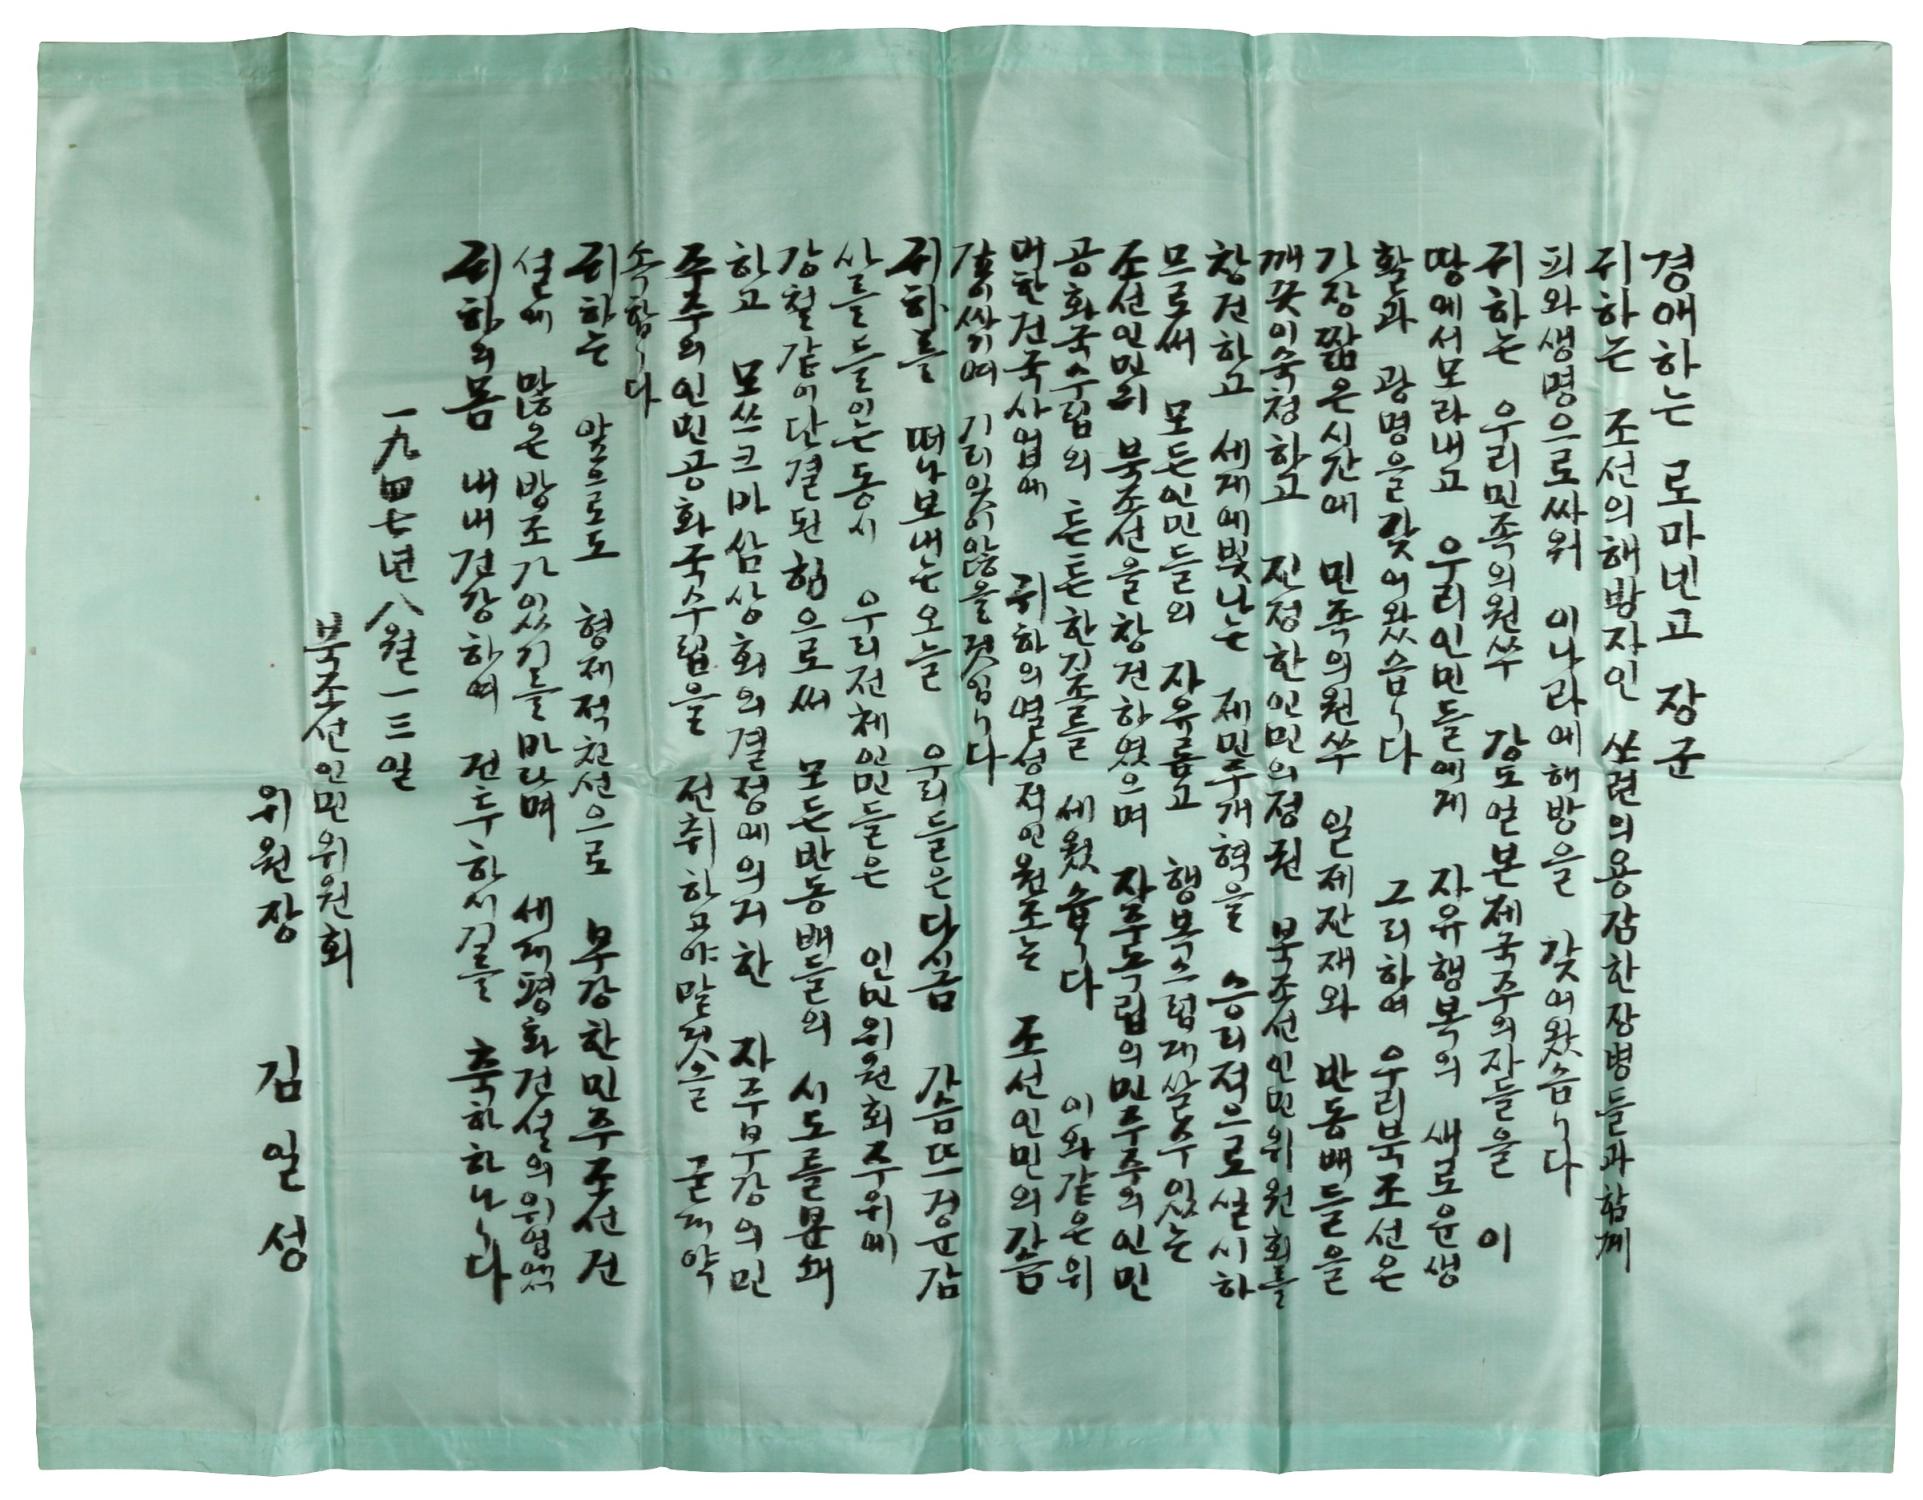 경애하는 로마넨고 장군
귀하는 조선의해방자인 쏘련의용감한장병들과함께
피와생명으로싸워 이나라에해방을 갖어왔습니다
귀하는 우리민족의원쑤 강도일본제국주의자들을 이
땅에서모라내고 우리인민들에게 자유행복의 새로운생
활과 광명을갖어왔습니다 그리하여 우리북조선은
가장짧은시간에 민족의원쑤 일제잔재와 반동배들을
깨끗이숙청하고 진정한인민의정권 북조선인민위원회를
창건하고 세계에빛나는 제민주개혁을 승리적으로실시하
므로써 모든인민들의 자유롭고 행복스럽게살수있는
조선인민의 북조선을창건하였으며 자주독립의민주주의인민
공화국수립의 튼튼한기초를 세웠습니다 이와같은위
대한건국사업에 귀하의열성적인원조는 조선인민의가슴
같이싸기여 기리잊이않을것입니다
귀하를 떠나보내는오늘 우리들은다시금 가슴뜨거운감
사를들이는동시 우리전체인민들은 인민위원회주위에
강철같이단결된힘으로써 모든반동배들의 시도를분쇄
하고 모쓰크바쌈상회의결정에의거한 자주부강의민
주주의인민공화국수립을 전취하고야말것을 굳게약
속합니다
귀하는 앞으로도 형제적친선으로 부강한민주조선건
설에 많은방조가있기를바라며 세계평화건설의위업에서
귀하의몸 내내건강하여 전투하시기를 축하하나니다
一九四七년八월一三일
북조선인민위원회
위원장 김일성